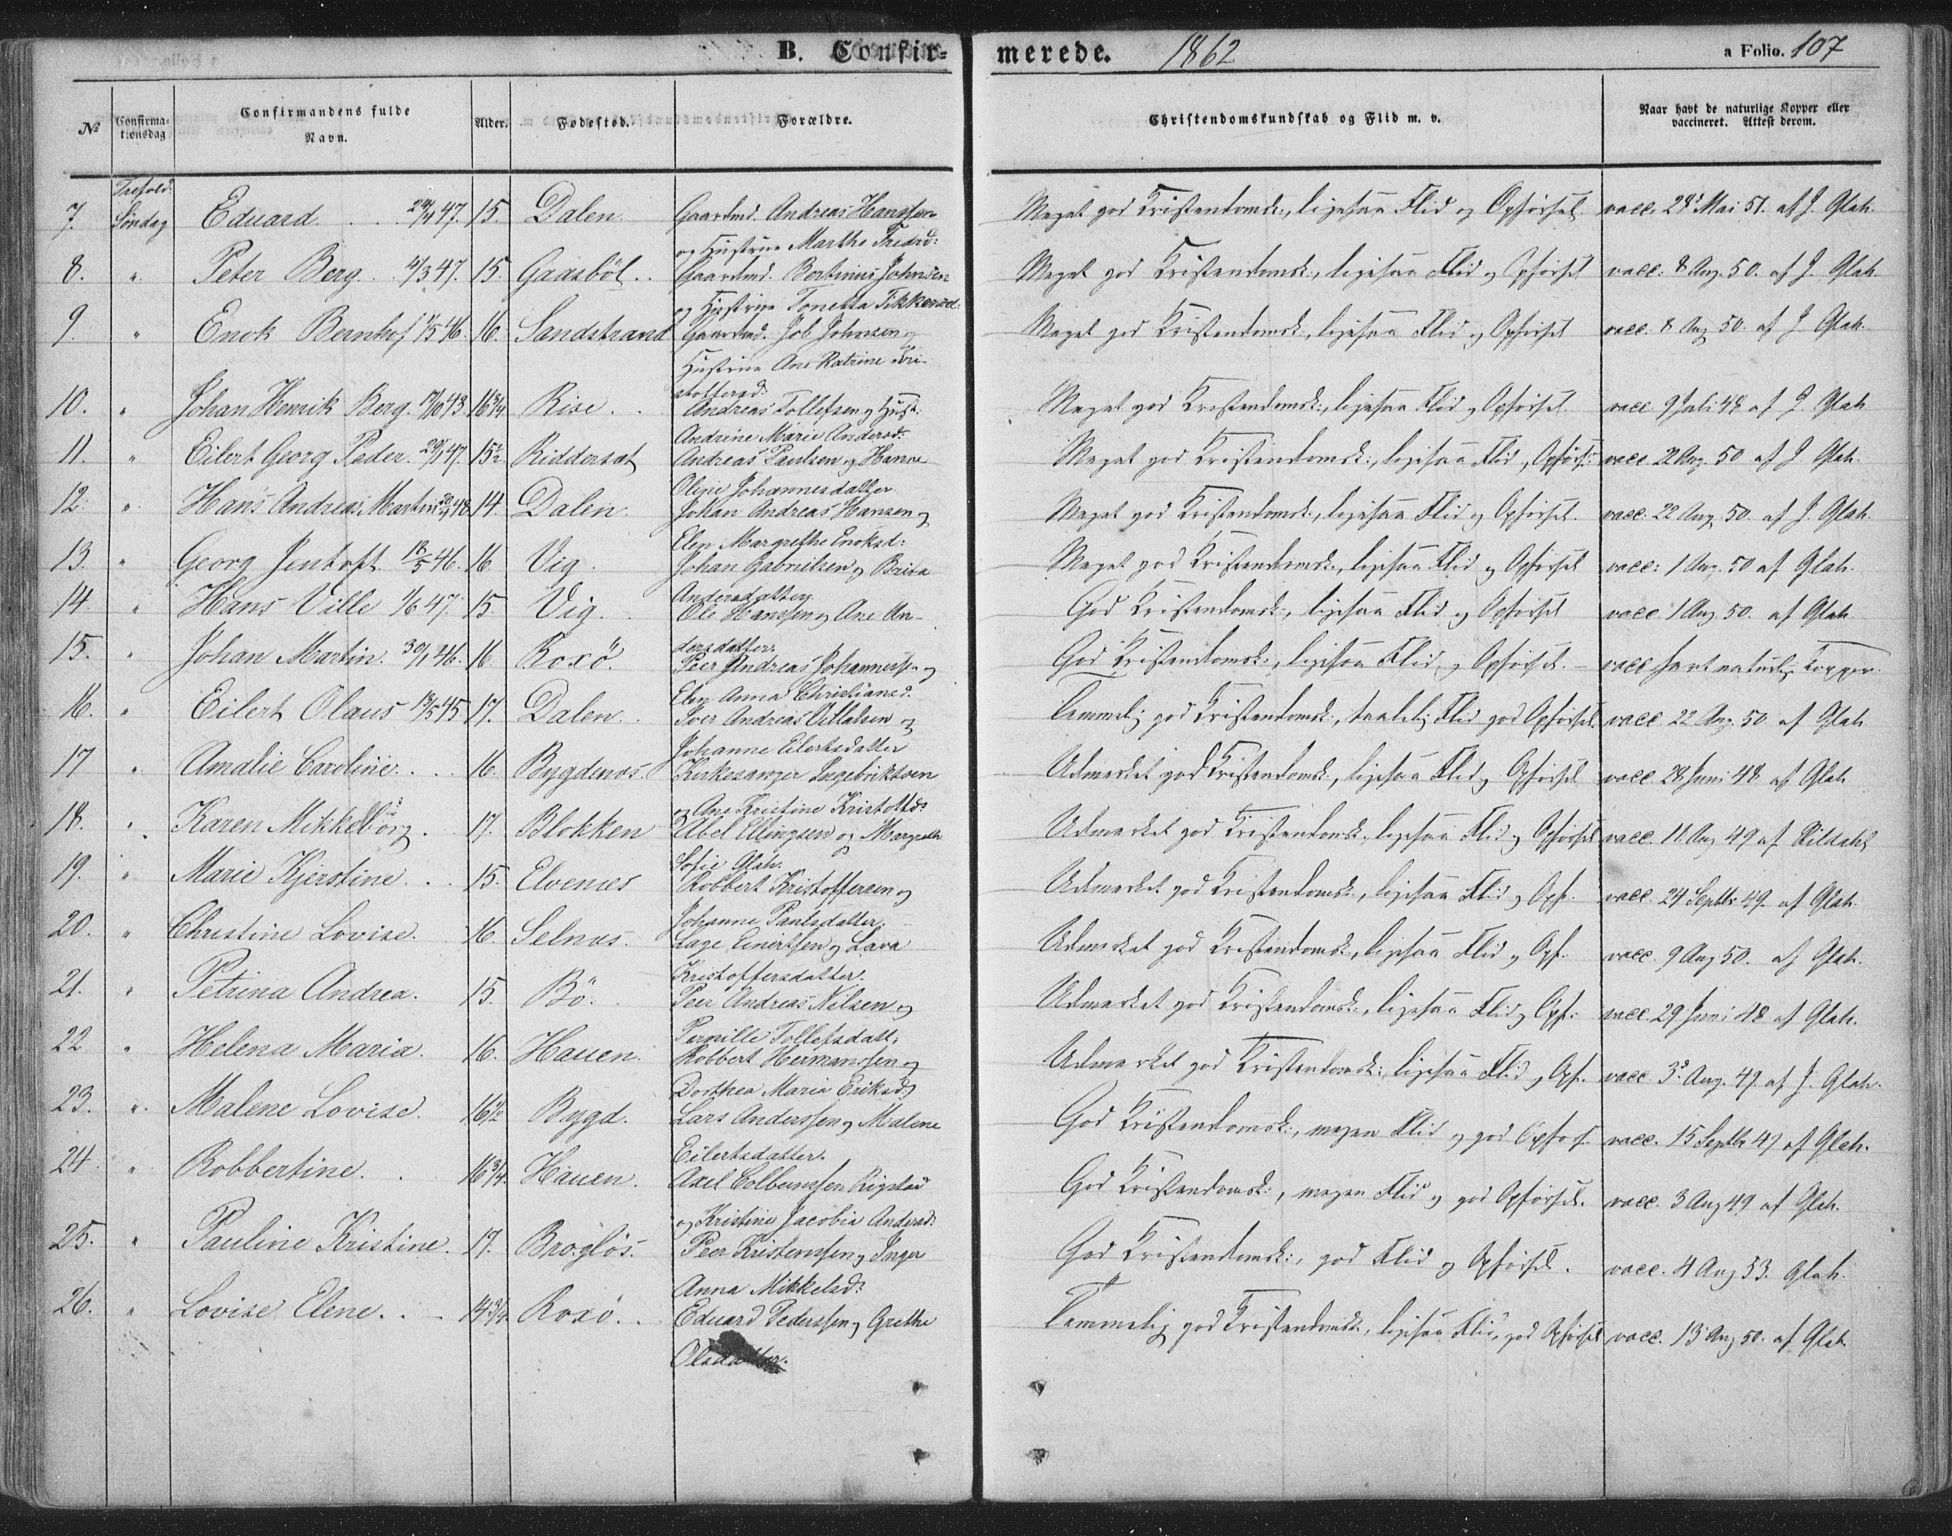 B. Confirmerede. 1862 a Folio. 107
No Confirmationsdag Confirmandens fulde Navn. Alder. Fødested. Forældre. Christendomskundskab og Flid m. v. Naar havt de naturlige Kopper eller vaccineret. Attest derom.
Trefold:
7. Søndag Eduard 15. Dalen Gaardmd. Andreas Hanssen Meget god Kristendomsk:, ligesaa Flid og Opførsel. vacc. 28' Mai 51. af J. Glah.
og Hustrue Marthe Fredrd:
8. " Peter Berg. 4/3 47. 15. Gaasbøl. Gaardmd. Bertinus Johnsen Meget god Kristendomsk:, ligesaa Flid og Opførsel vacc: 8 Aug. 50. af J. Glah.
og Hustrue Tonetta
9. " Enok Bernhof 16. Sandstrand Gaardmd. Job Johnsen og Meget god Kristendomsk:, ligesaa Flid og Opførsel vacc. 8 Aug 50. af J. Glah.
Hustrue Ane Katrine Kri-
stoffersd:
10. " Johan Henrik Berg. 16 3/4 Rise. Andreas Tollefsen og Hust. Meget god Kristendomsk:, ligesaa Flid og Opførsel vacc. 9 Juli 48 af J. Glah
Andrine Marie Andersd:
11. " Eilert Georg Peder. 15 1/2 Riddersæt Andreas Paulsen og Hanne Meget god Kristendomsk:, ligesaa Flid, Opførs: vacc. 22 Aug. 50 af J Glah.
Oline Johannesdatter
12. " Hans Andreas Martin 14. Dalen. Johan Andreas Hansen og Meget god Kristendomsk:, ligesaa Flid og Opførsel. vacc. 22 Aug. 50. af J. Glah.
Elen Margrethe Enoksd:
13. " Georg Jentoft 18/5 46. 16 Vig. Johan Gabrielsen og Berita Meget god Kristendomsk:, ligesaa Flid og Opførsel vacc: 1 Aug. 50 af Glah.
Andersdatter
14 " Hans Ville 1/6 47. 15. Vig. Ole Hanssen og Ane An- God Kristendomsk:, ligesaa Flid og Opførsel vacc. 1 Aug 50. af Glah.
dersdatter.
15. " Johan Martin. 30/1 46. 16 Roxö. Peer Andreas Johanness. og God Kristendomsk:, ligesaa Flid og Opførsel. vacc havt naturlig Kopper.
Elen Anna Christiansd.
16. " Eilert Olaus 17. Dalen. Iver Andreas og Temmelig god Kristendomsk:, taalelig Flid god Opførsel. vacc 22 Aug. 50. af Glah
Johanne Eilertsdatter
17 " Amalie Caroline. 16. Bygdenæs. Kirkesanger Ingebriktsen Udmærket god Kristendomsk:, ligesaa Flid og Opførsel vacc. 28 Juni 48 af Glah
og Ane Kristine Kristoffd:
18. " Karen Mikkelborg. 17. Blokken Abel Ellingsen og Margrethe Udmærket god Kristendomsk:, ligesaa Flid og Opførsel vacc. 11 Aug 49 af Kildahl
Sofie Glah.
19. " Marie Kjerstine. 15. Elvenæs Robbert Kristoffersen og Udmærket god Kristendomsk:, ligesaa Flid og Opf. vacc. 24 Septbr 49. af Glah.
Johanne Paulsdatter.
20. " Christine Lovise. 16. Selnæs. Lage Einertsen og Lava Udmærket god Kristendomsk:, ligesaa Flid og Opf. vacc. 9 Aug 50. af Glah.
Kristoffersdatter.
21. " Petrina Andrea. 15. Bö. Peer Andreas Nilsen og Udmærket god Kristendomsk:, ligesaa Flid og Opf: vacc. 29 Juni 48 af Glah.
Pernille Tollefsdatt.
22 " Helena Maria. 16. Hauen. Robbert Hermanssen og Udmærket god Kristendomsk:, ligesaa Flid og Opf. vacc. 3' Aug. 49. af J. Glah.
Dorthea Maria Eriksd:
23. " Malene Lovise. 16 1/2 Bygd. Lars Anderssen og Malene God Kristendomsk:, megen Flid og god Opførs. vacc. 15 Septbr 49 af Glah.
Eilertsdatter.
24 " Robbertine. 16 3/4 Hauen. Axel Colbeinssen Rigstad God Kristendomsk:, megen Flid og god Opførsel. vacc. 3 Aug 49 af Glah.
og Kristine Jacobia Andersd:
25. " Pauline Kristine. 17. Brogløs. Peer Kristenssen og Inger God Kristendomsk:, god Flid og Opførsel. vacc. 4 Aug 53. Glah.
Anna Mikkelsd:
26. " Lovise Elene. 14 3/4 Roxö. Eduard Pederssen og Grethe Temmelig god Kristendomsk:, ligesaa Flid, god Opførsel vacc. 13 Aug 50. af Glah.
Olsdatter.